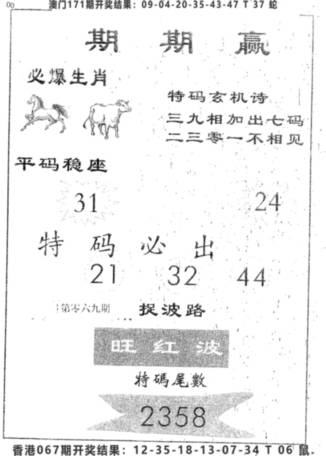 00 澳门171期开奖结果：09-04-20-35-43-47 T 37 蛇
期期赢
必爆生肖
特码玄机诗
三九相加出七码
二三零一不相见
平码稳座
31 24
特码必出
21 32 44
第零六九期 捉波路
旺红波
特碼尾數
2358
香港067期开奖结果：12-35-18-13-07-34 T 06 鼠.